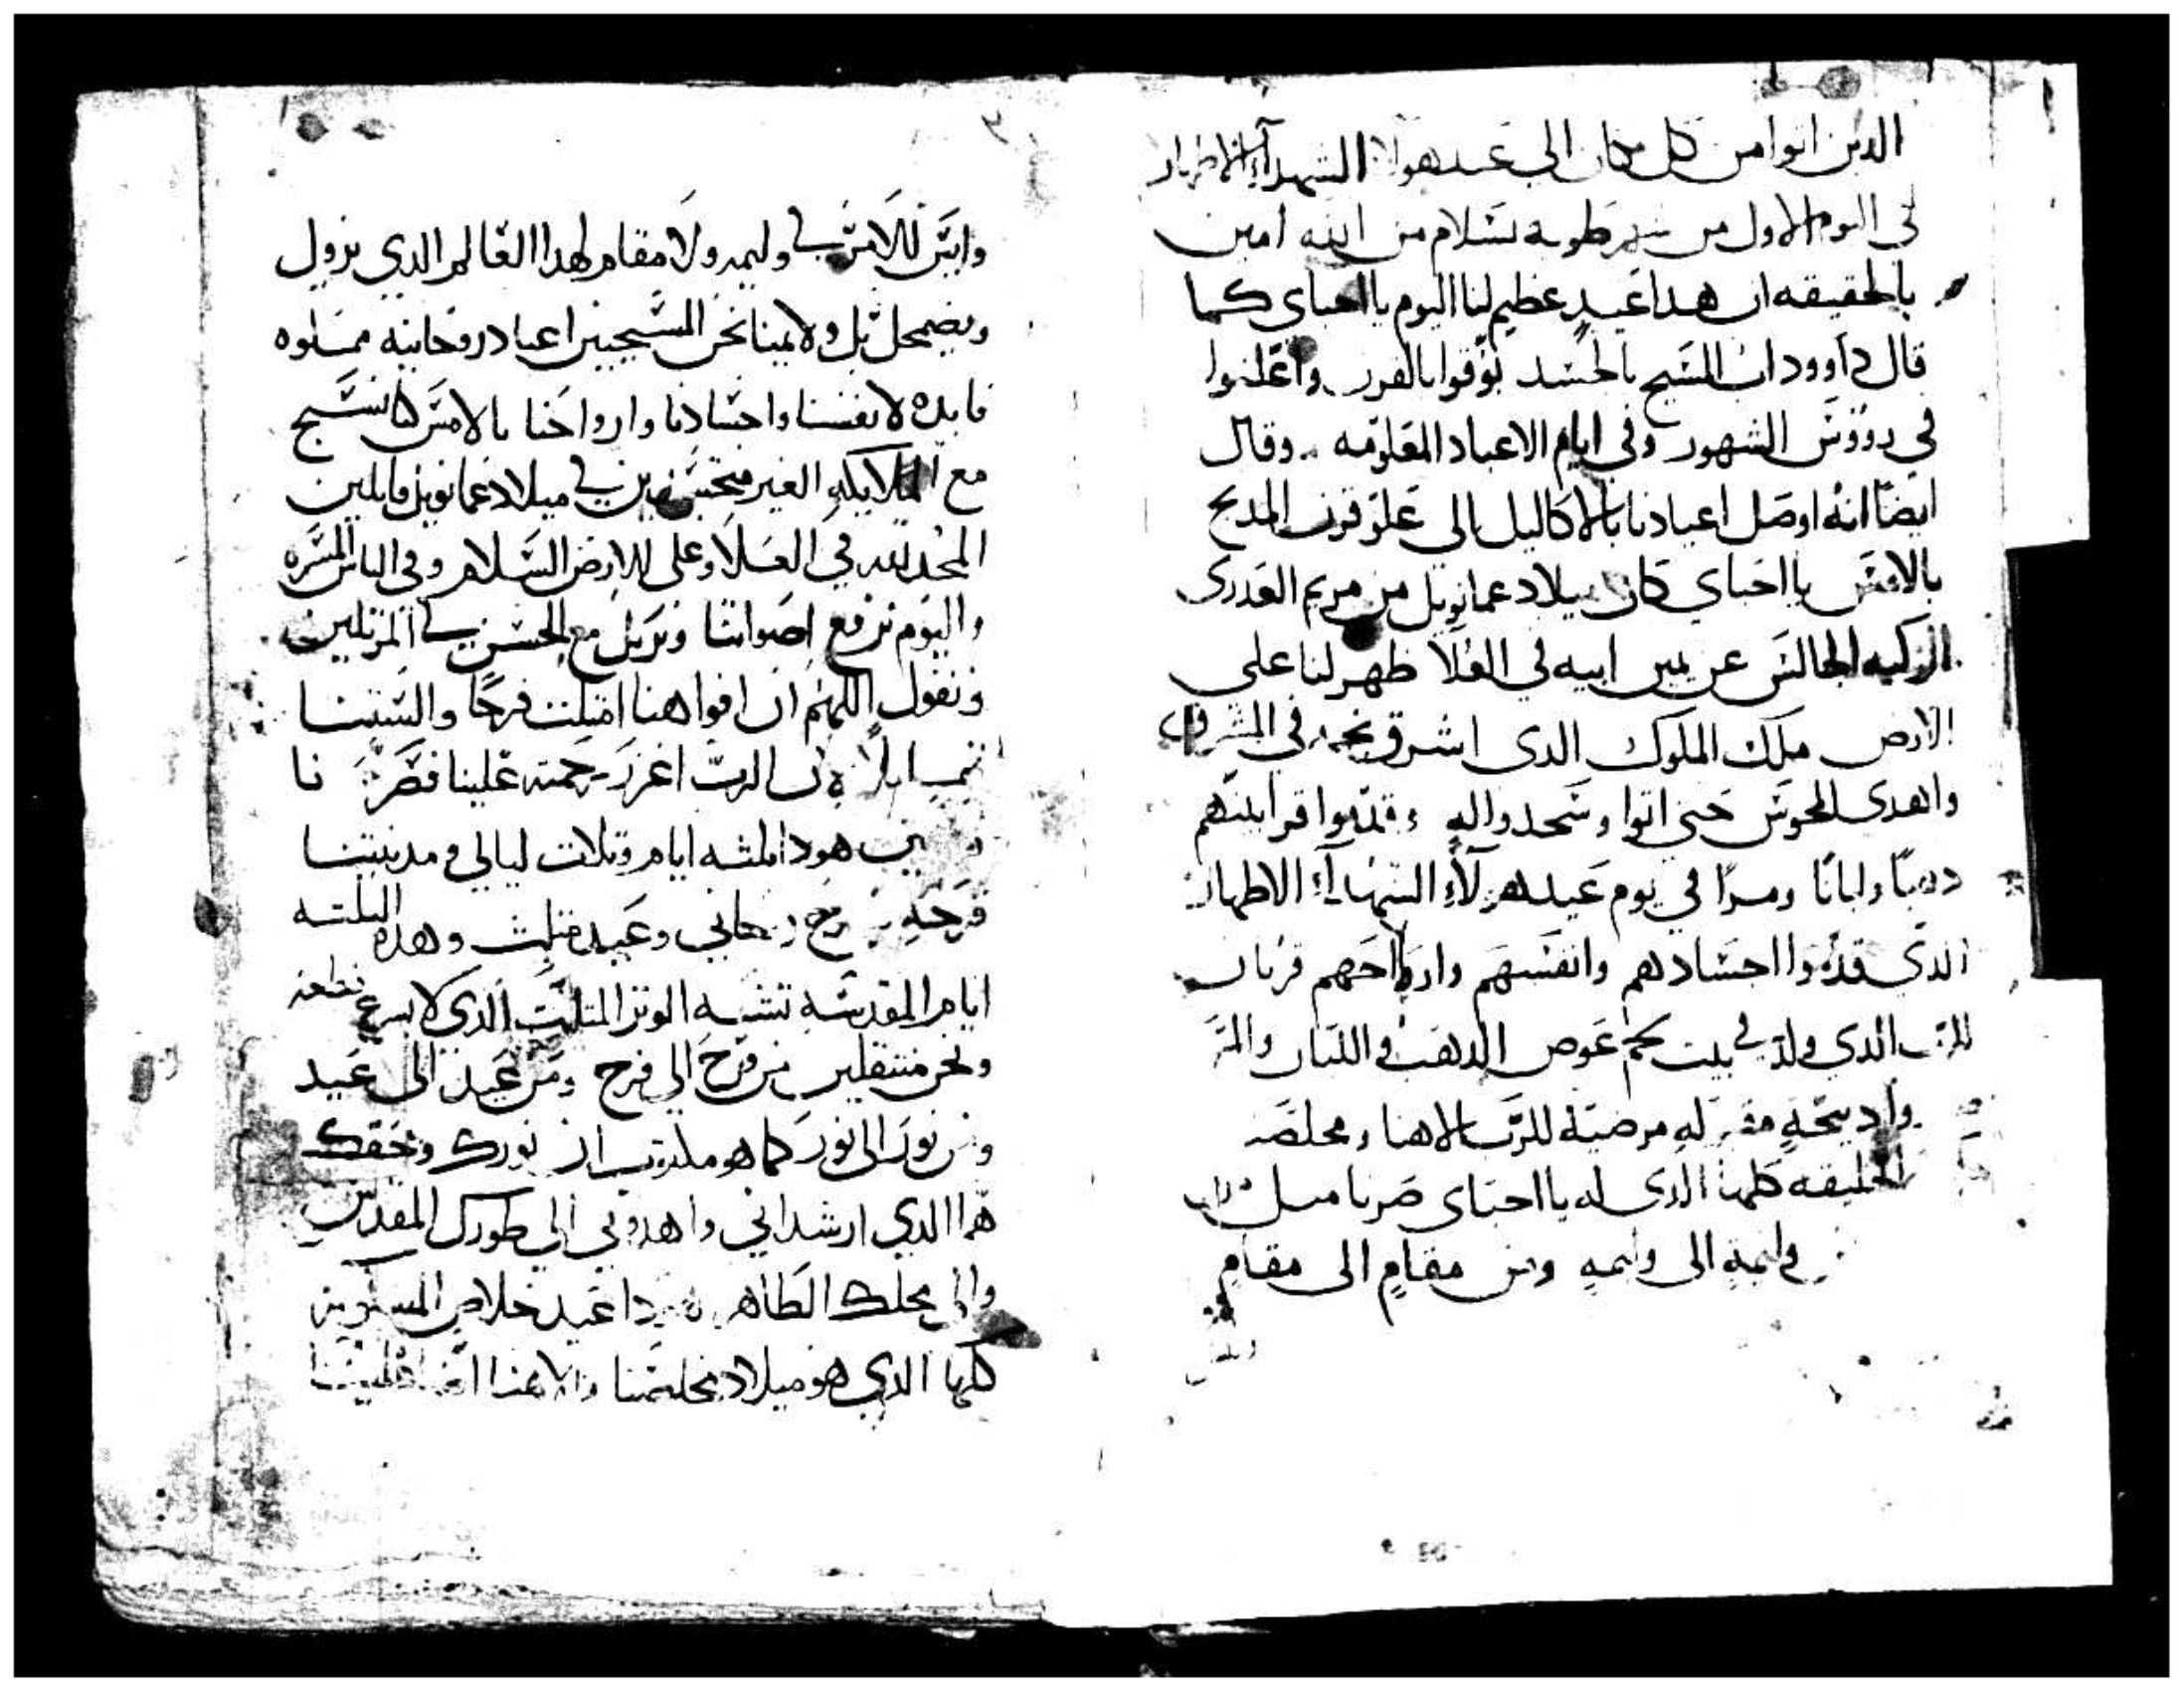 الدين اتوا من كل مكان الى عيد هولا الشهدآء الاطهار
في اليوم الاول من شهر طوبه بسلام من الله امين
بالحقيقه ان هدا عيد عظيم لنا اليوم يا احباي كما
قال داوود ان المسيح بالجسد بوقوا بالقرن واعلنوا
في رووس الشهور وفي ايام الاعياد المعلومه وقال
ايضا انه اوصل اعيادنا بالاكاليل الي علو قرن المدبح
بالامس يا احباي كان ميلاد عمانويل من مريم العدرى
الزكيه الجالس عن يمين ابيه في العلا ظهر لنا على
الارض ملك الملوك الدى اشرق نجمه في المشرق
واهدى المجوس حتى اتوا وسجدوا له وقدموا قرابينهم
دهبًا ولبانًا ومرًا في يوم عيد هولآء الشهدآء الاطهار
الدى قدموا اجسادهم وانفسهم وارواحهم قربان
للرب الدي ولد في بيت لحم عوض الدهب واللبان والمر
وادبيحة مقبوله مرضية للرب الاهنا ومخلص
الخليقه كلها الدى له يا احباى صرنا
وليمةٍ الى وليمه ومن مقامٍ الى مقامٍ
وليس للامس وليمه ولا مقام لهدا العالم الدي يزول
ويضمحل بل ولايمنا نحن المسيحيين اعياد روحانيه مملوه
فايده لانفسنا واجسادنا وارواحنا بالامس كنا نسبح
مع الملايكه الغير متجسدين في ميلاد عمانويل قايلين
المجد لله في العلا وعلى الارض السلام وفي الناس المسره
واليوم نرفع اصواتنا ونرتل مع الحسن في المرتلين
ونقول اللهم ان افواهنا امتلت فرحًا والسنتنا
تهليلا لان الرب اغزر رحمته علينا فصرنا
هودا تلته ايام وتلات ليالي في مدينتنا
فرحة فرح روحاني وعيد متلت وهده التلته
ايام المقدسه تشبه الوتر المتلت الدي لا يسرع قطعه
ونحن منتقلين من فرح الي فرح ومن عيد الى عيد
ومن نور الى نور كما هو مكتوب ان نورك وحقك
هما الدي ارشداني واهدوني الي طورك المقدس
والى محلك الطاهر عيد خلاص المسكونه
كلها الدي هو ميلاد مخلصنا والاهنا